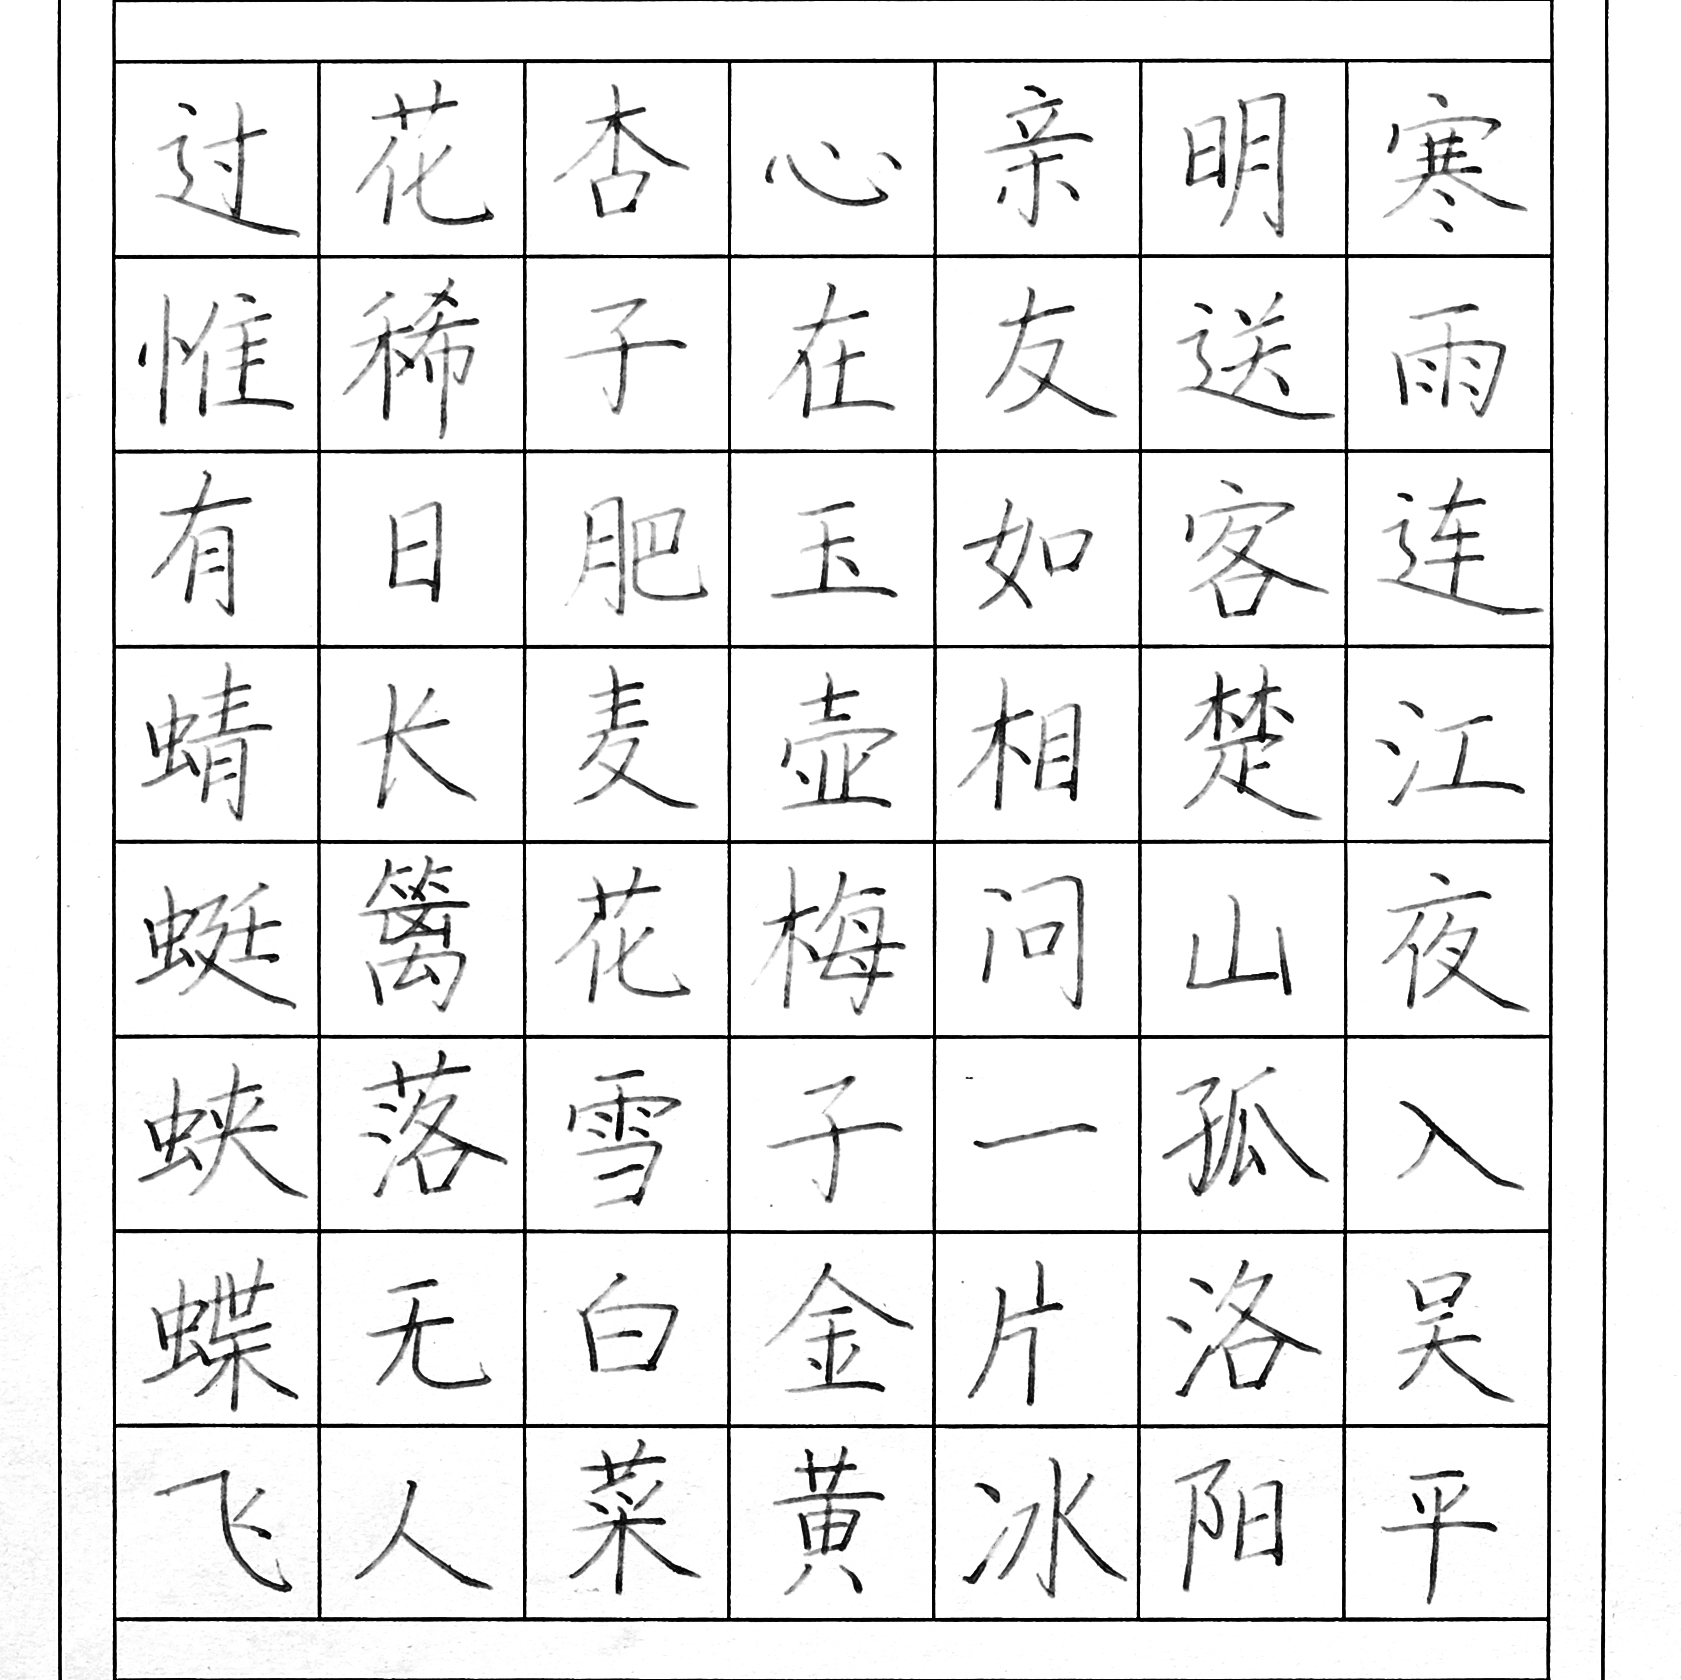 寒雨连江夜入吴平
明送客楚山孤洛阳
亲友如相问一片冰
心在玉壶梅子金黄
杏子肥麦花雪白菜
花稀日长篱落无人
过惟有蜻蜓蛱蝶飞